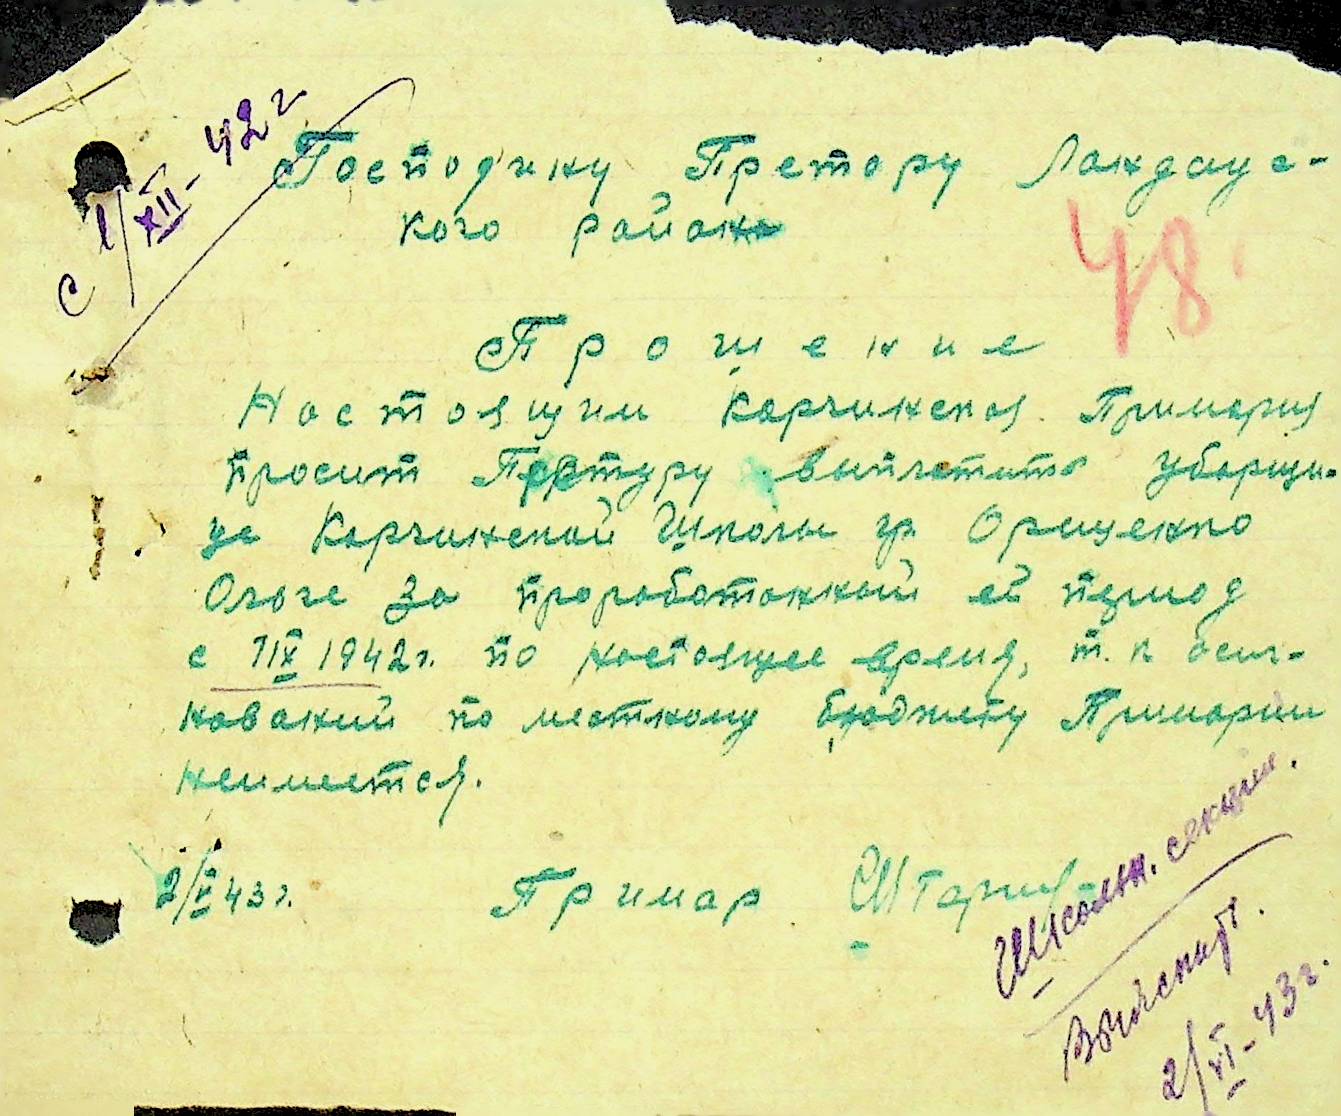 с 1/XII - 42 г.
Господину Претору Ландаус-
кого района
48.
Прошение
Настоящим Карчинская Примария
просит Претуру выплатить уборщи-
це Карчинской Школы гр. Орищенко
Ольге за проработанный ей период
с 1 IX 1942 г. по настоящее время, т. к
нований по местному бюджету Примарии
неимеется.
2/VI 43 г. Примар
Школьн. секции.
Выяснить.
2/VI - 43 г.